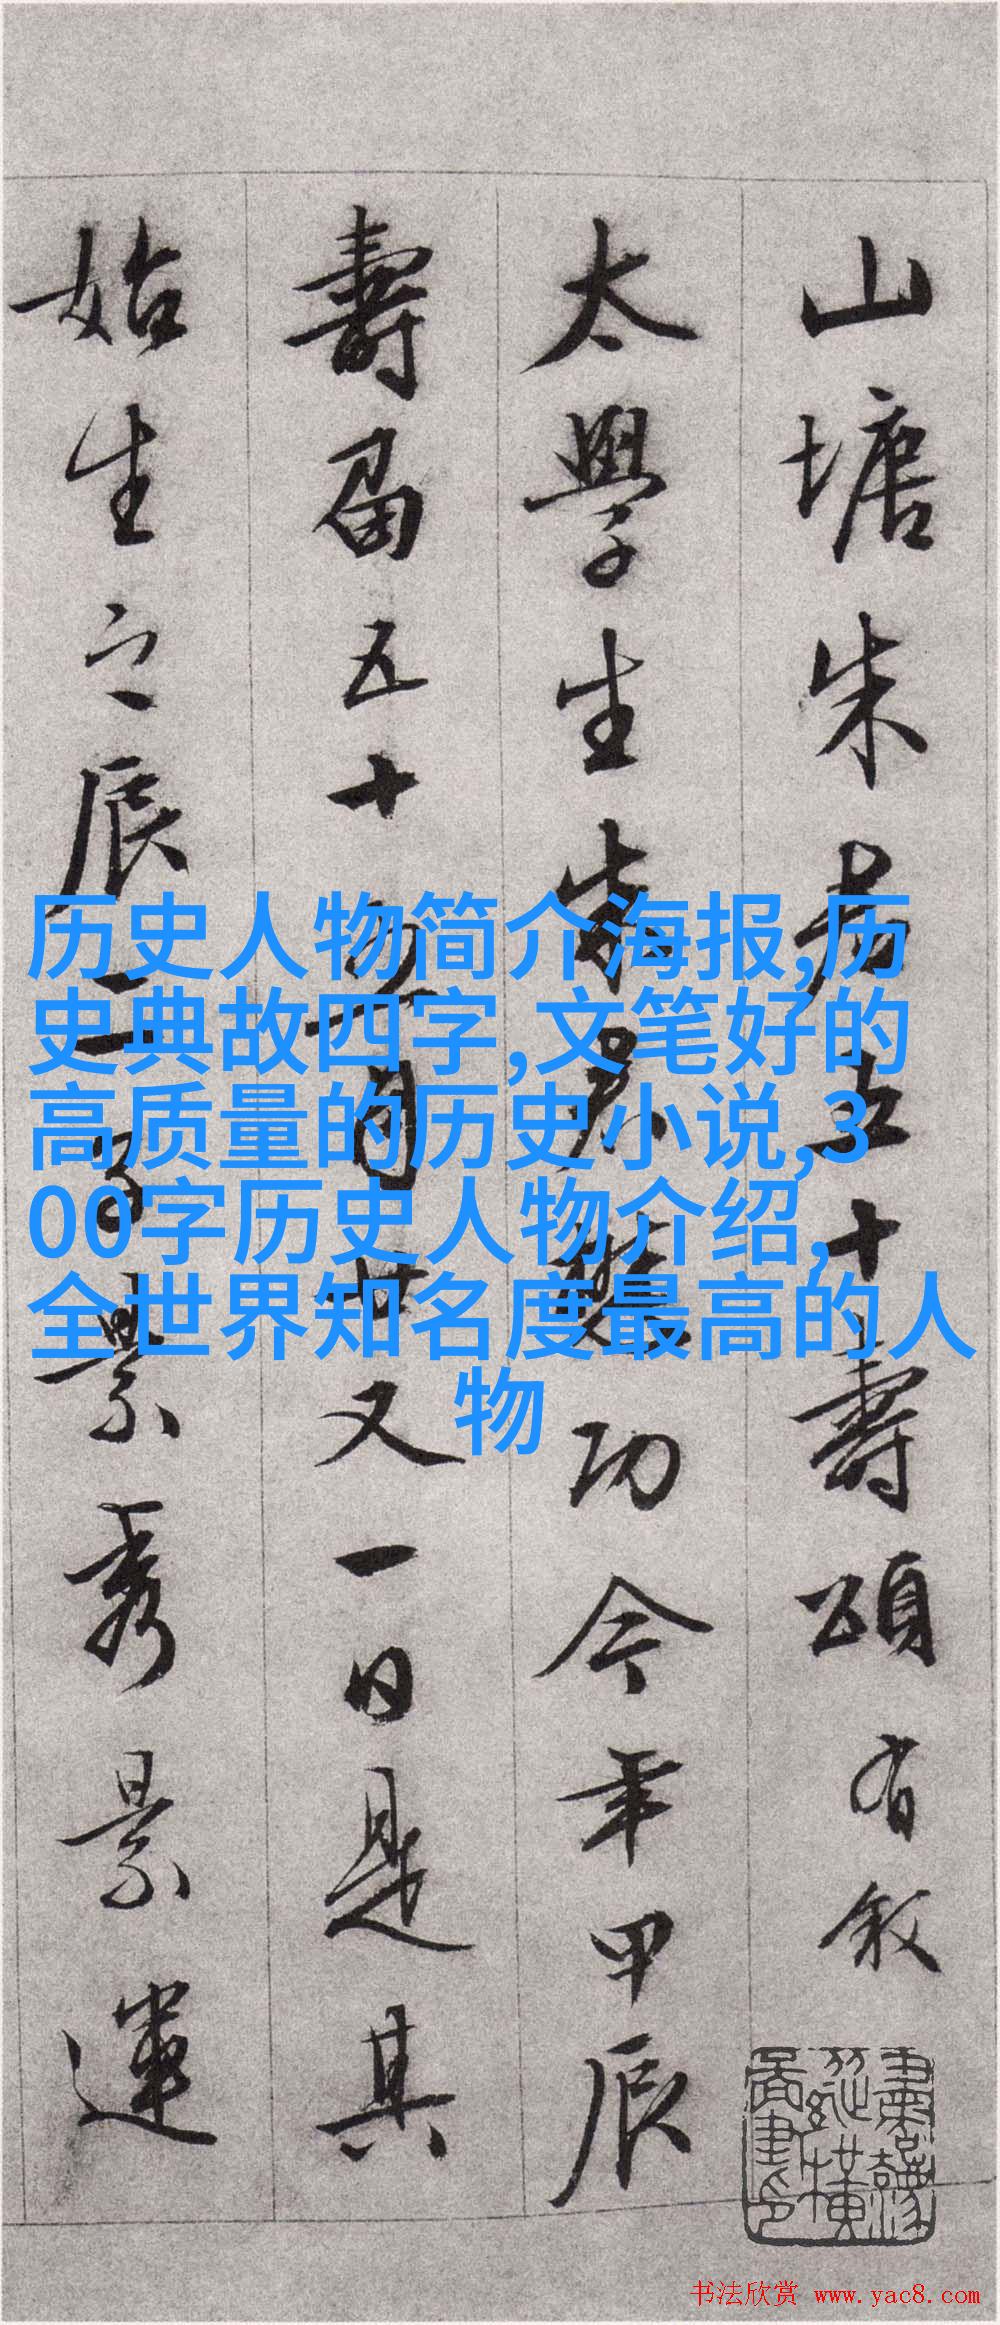 山塘朱君五十壽頌有敘
太學生朱君懋功今年甲辰
壽届五十五月廿又一日是其
始生之辰二子景秀景運
历史人物简介海报,历
史典故四字,文笔好的
高质量的历史小说,3
00字历史人物介绍,
全世界知名度最高的人
物
书法欣赏 www.yac8.com